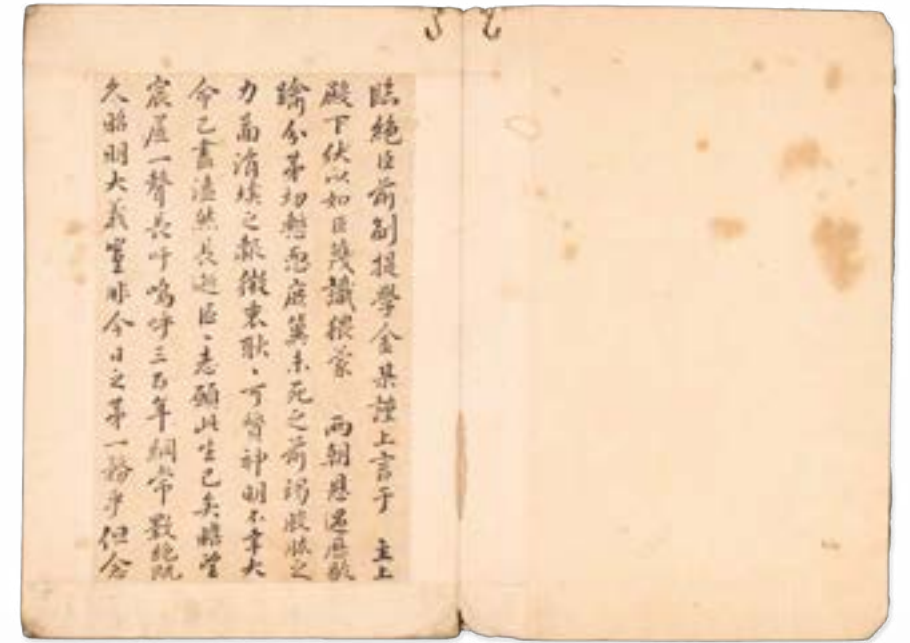 臨絶臣前副提學金某謹上言于 主上
殿下伏以如臣蔑識猥蒙 兩朝恩遇歷敭
踰分第切慙恧庶冀未死之前竭股肱之
力啚涓埃之報微衷耿〻可質神明不幸大
命已盡溘然長逝臣〻志願此生已矣瞻望
宸扆一聲長吁嗚呼三百年綱常斁絶既
久昭明大義豈非今日之第一務乎但念